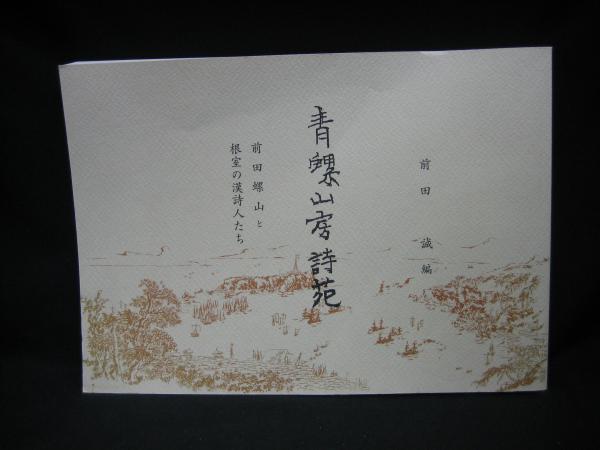 前田 誠編
青螺山房詩苑
前田螺山と
根室の漢詩人たち